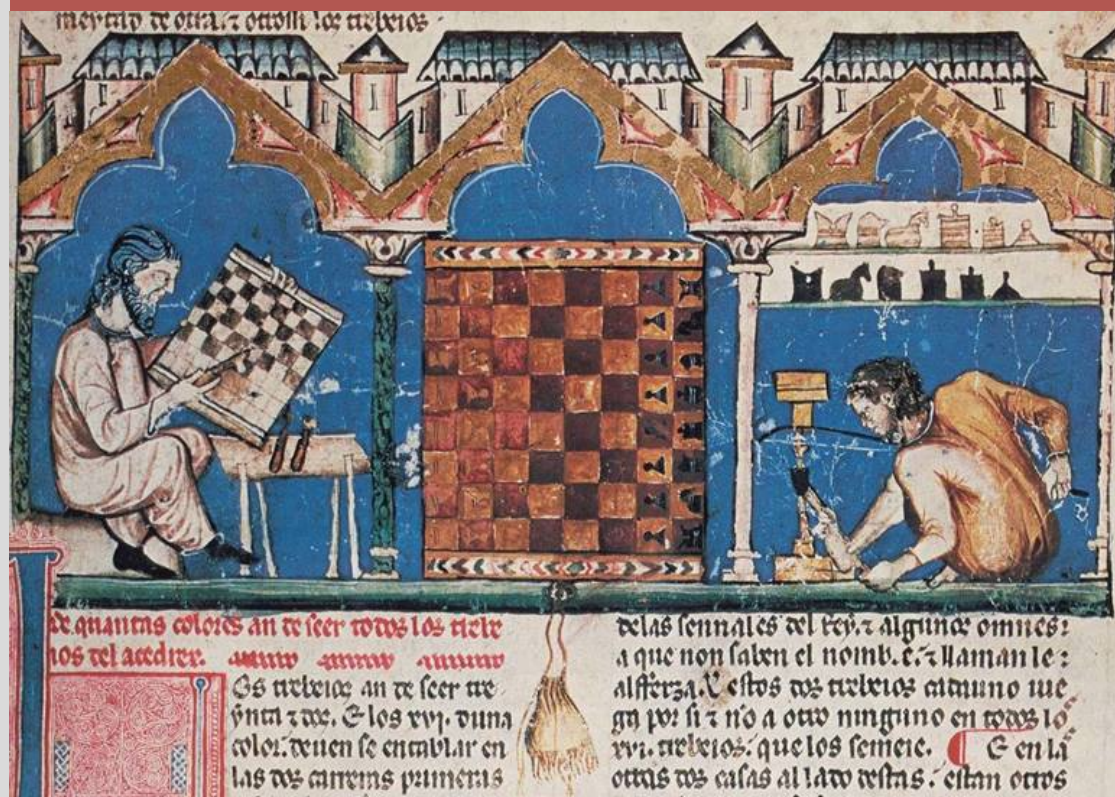 meytad de otra. ⁊ otrossi los trebeios.
De quantas colores an de seer todos los trebe
ios del acedrex.
Os trebeios an de seer tre
ynta ⁊ dos. E los xvj. duna
color. deuen se entablar en
las dos carreras primeras
delas sennales del Rey. ⁊ algunos omnes:
a que non saben el nombre. ⁊ llaman le:
alfferza. E estos dos trebeios cadauno iue
ga por si ⁊ no a otro ninguno en todos los
xvi. trebeios. que los semeie. E en las
otras dos casas al lado destas. estan otros